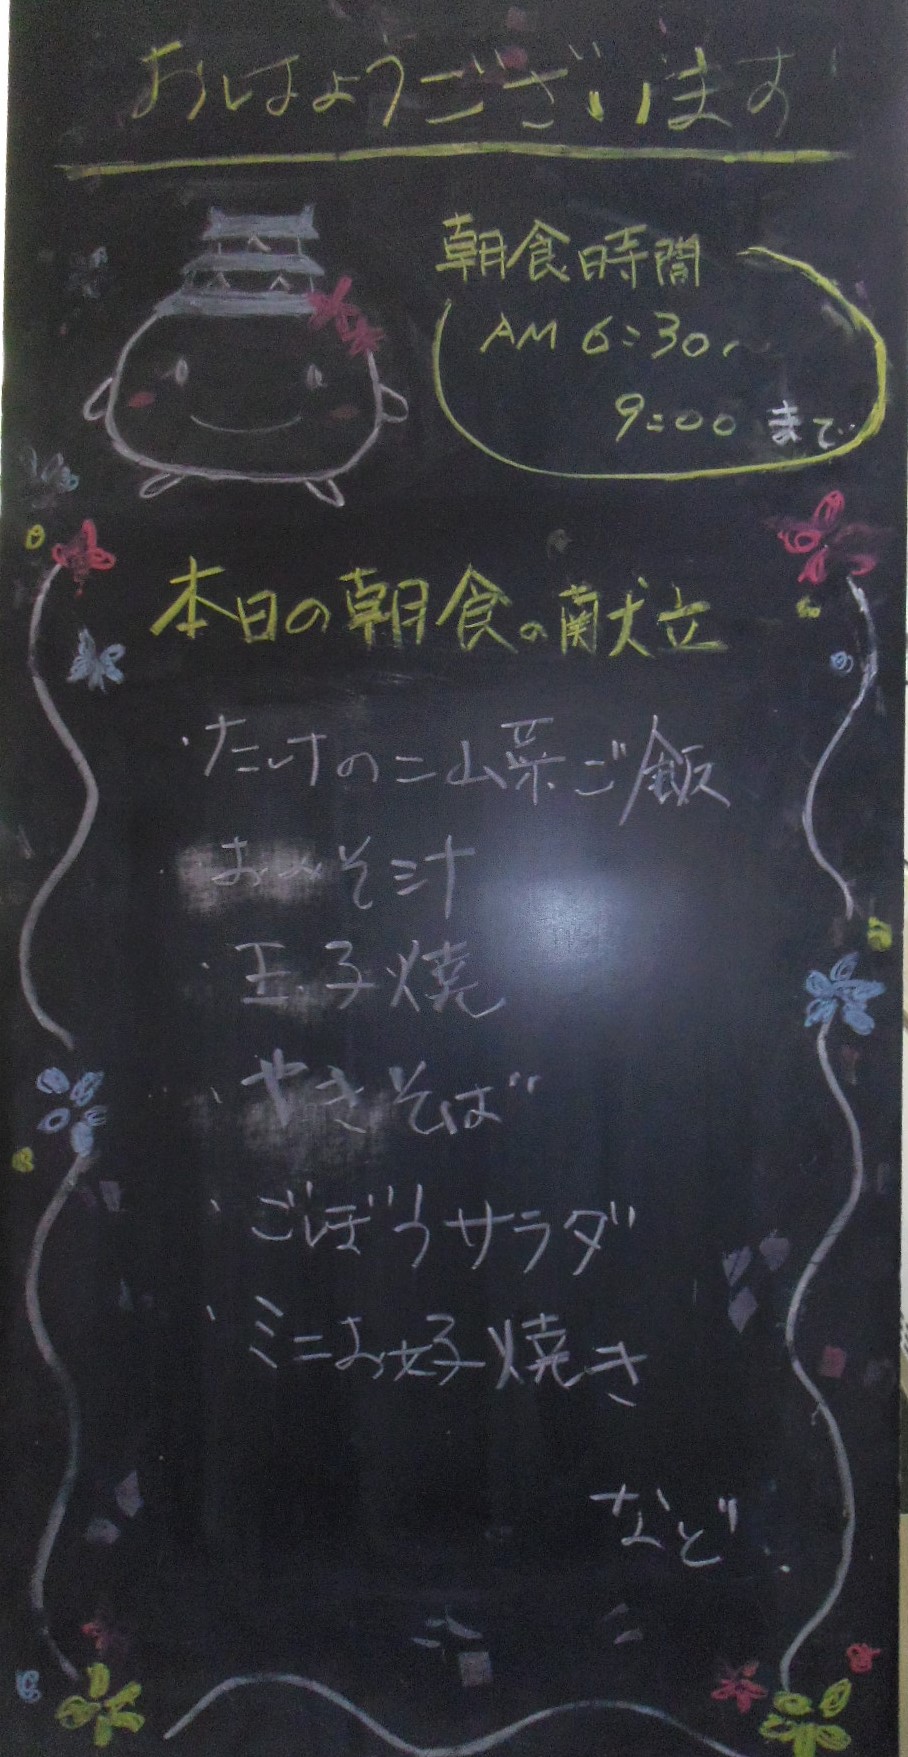 おはようございます
朝食時間
AM 6:30~
9:00 まで
本日の朝食の献立
・たけのこ山菜ご飯
・おみそ汁
・玉子焼
・やきそば
・ごぼうサラダ
・ミニお好み焼き
など